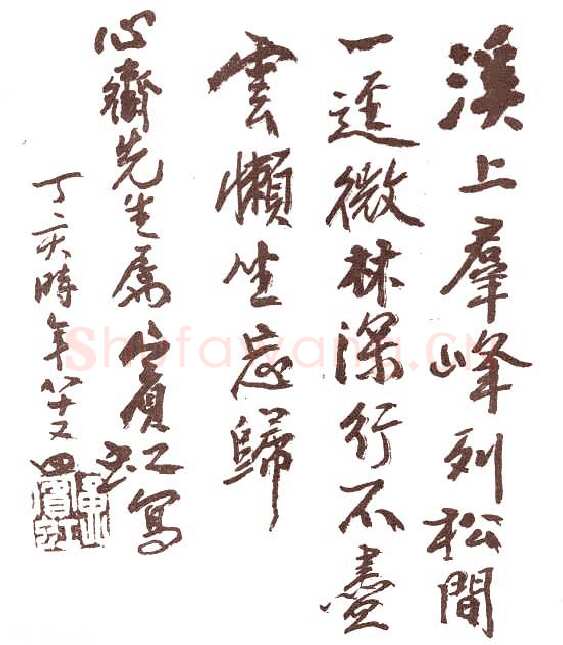 溪上羣峰列松間
一逕微林深行不盡
雲懶坐忘歸
心齋先生屬賓虹寫
丁亥時年八十又四
黃賓虹
Shufawang.cn